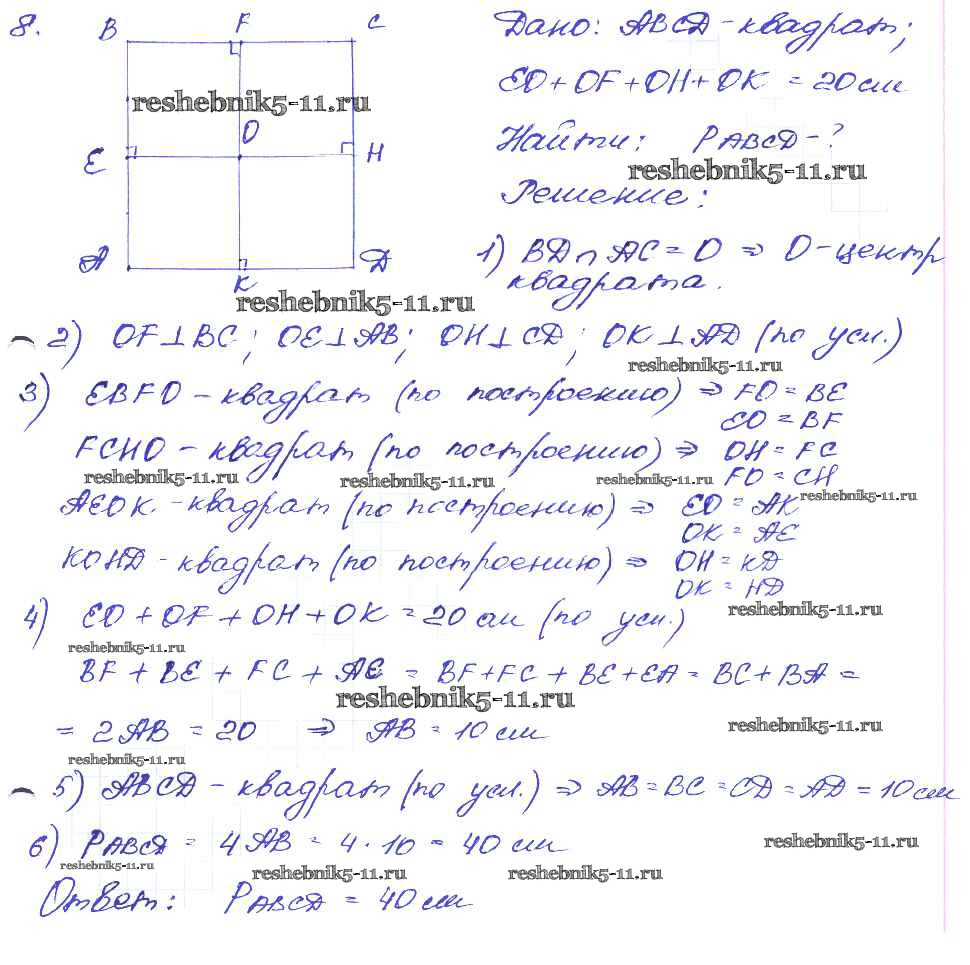 8. B F C
Дано: ABCD - квадрат;
EO + OF + OH + OK = 20 см
reshebnik5-11.ru
O
Найти: PABCD - ?
E H
reshebnik5-11.ru
Решение:
1) BD ∩ AC = O ⇒ O - центр
A K D
квадрата.
reshebnik5-11.ru
2) OF ⊥ BC; OE ⊥ AB; OH ⊥ CD; OK ⊥ AD (по усл.)
reshebnik5-11.ru
3) EBFO - квадрат (по построению) ⇒ FO = BE
EO = BF
FCHO - квадрат (по построению) ⇒ OH = FC
FO = CH
reshebnik5-11.ru reshebnik5-11.ru reshebnik5-11.ru
reshebnik5-11.ru
AEOK - квадрат (по построению) ⇒ EO = AK
OK = AE
KOHD - квадрат (по построению) ⇒ OH = KD
OK = HD
reshebnik5-11.ru
4) EO + OF + OH + OK = 20 см (по усл.)
reshebnik5-11.ru
BF + BE + FC + AE = BF + FC + BE + EA = BC + BA =
reshebnik5-11.ru
= 2AB = 20 ⇒ AB = 10 см
reshebnik5-11.ru
reshebnik5-11.ru
5) ABCD - квадрат (по усл.) ⇒ AB = BC = CD = AD = 10 см
6) PABCD = 4AB = 4 · 10 = 40 см
reshebnik5-11.ru
reshebnik5-11.ru reshebnik5-11.ru reshebnik5-11.ru
Ответ: PABCD = 40 см